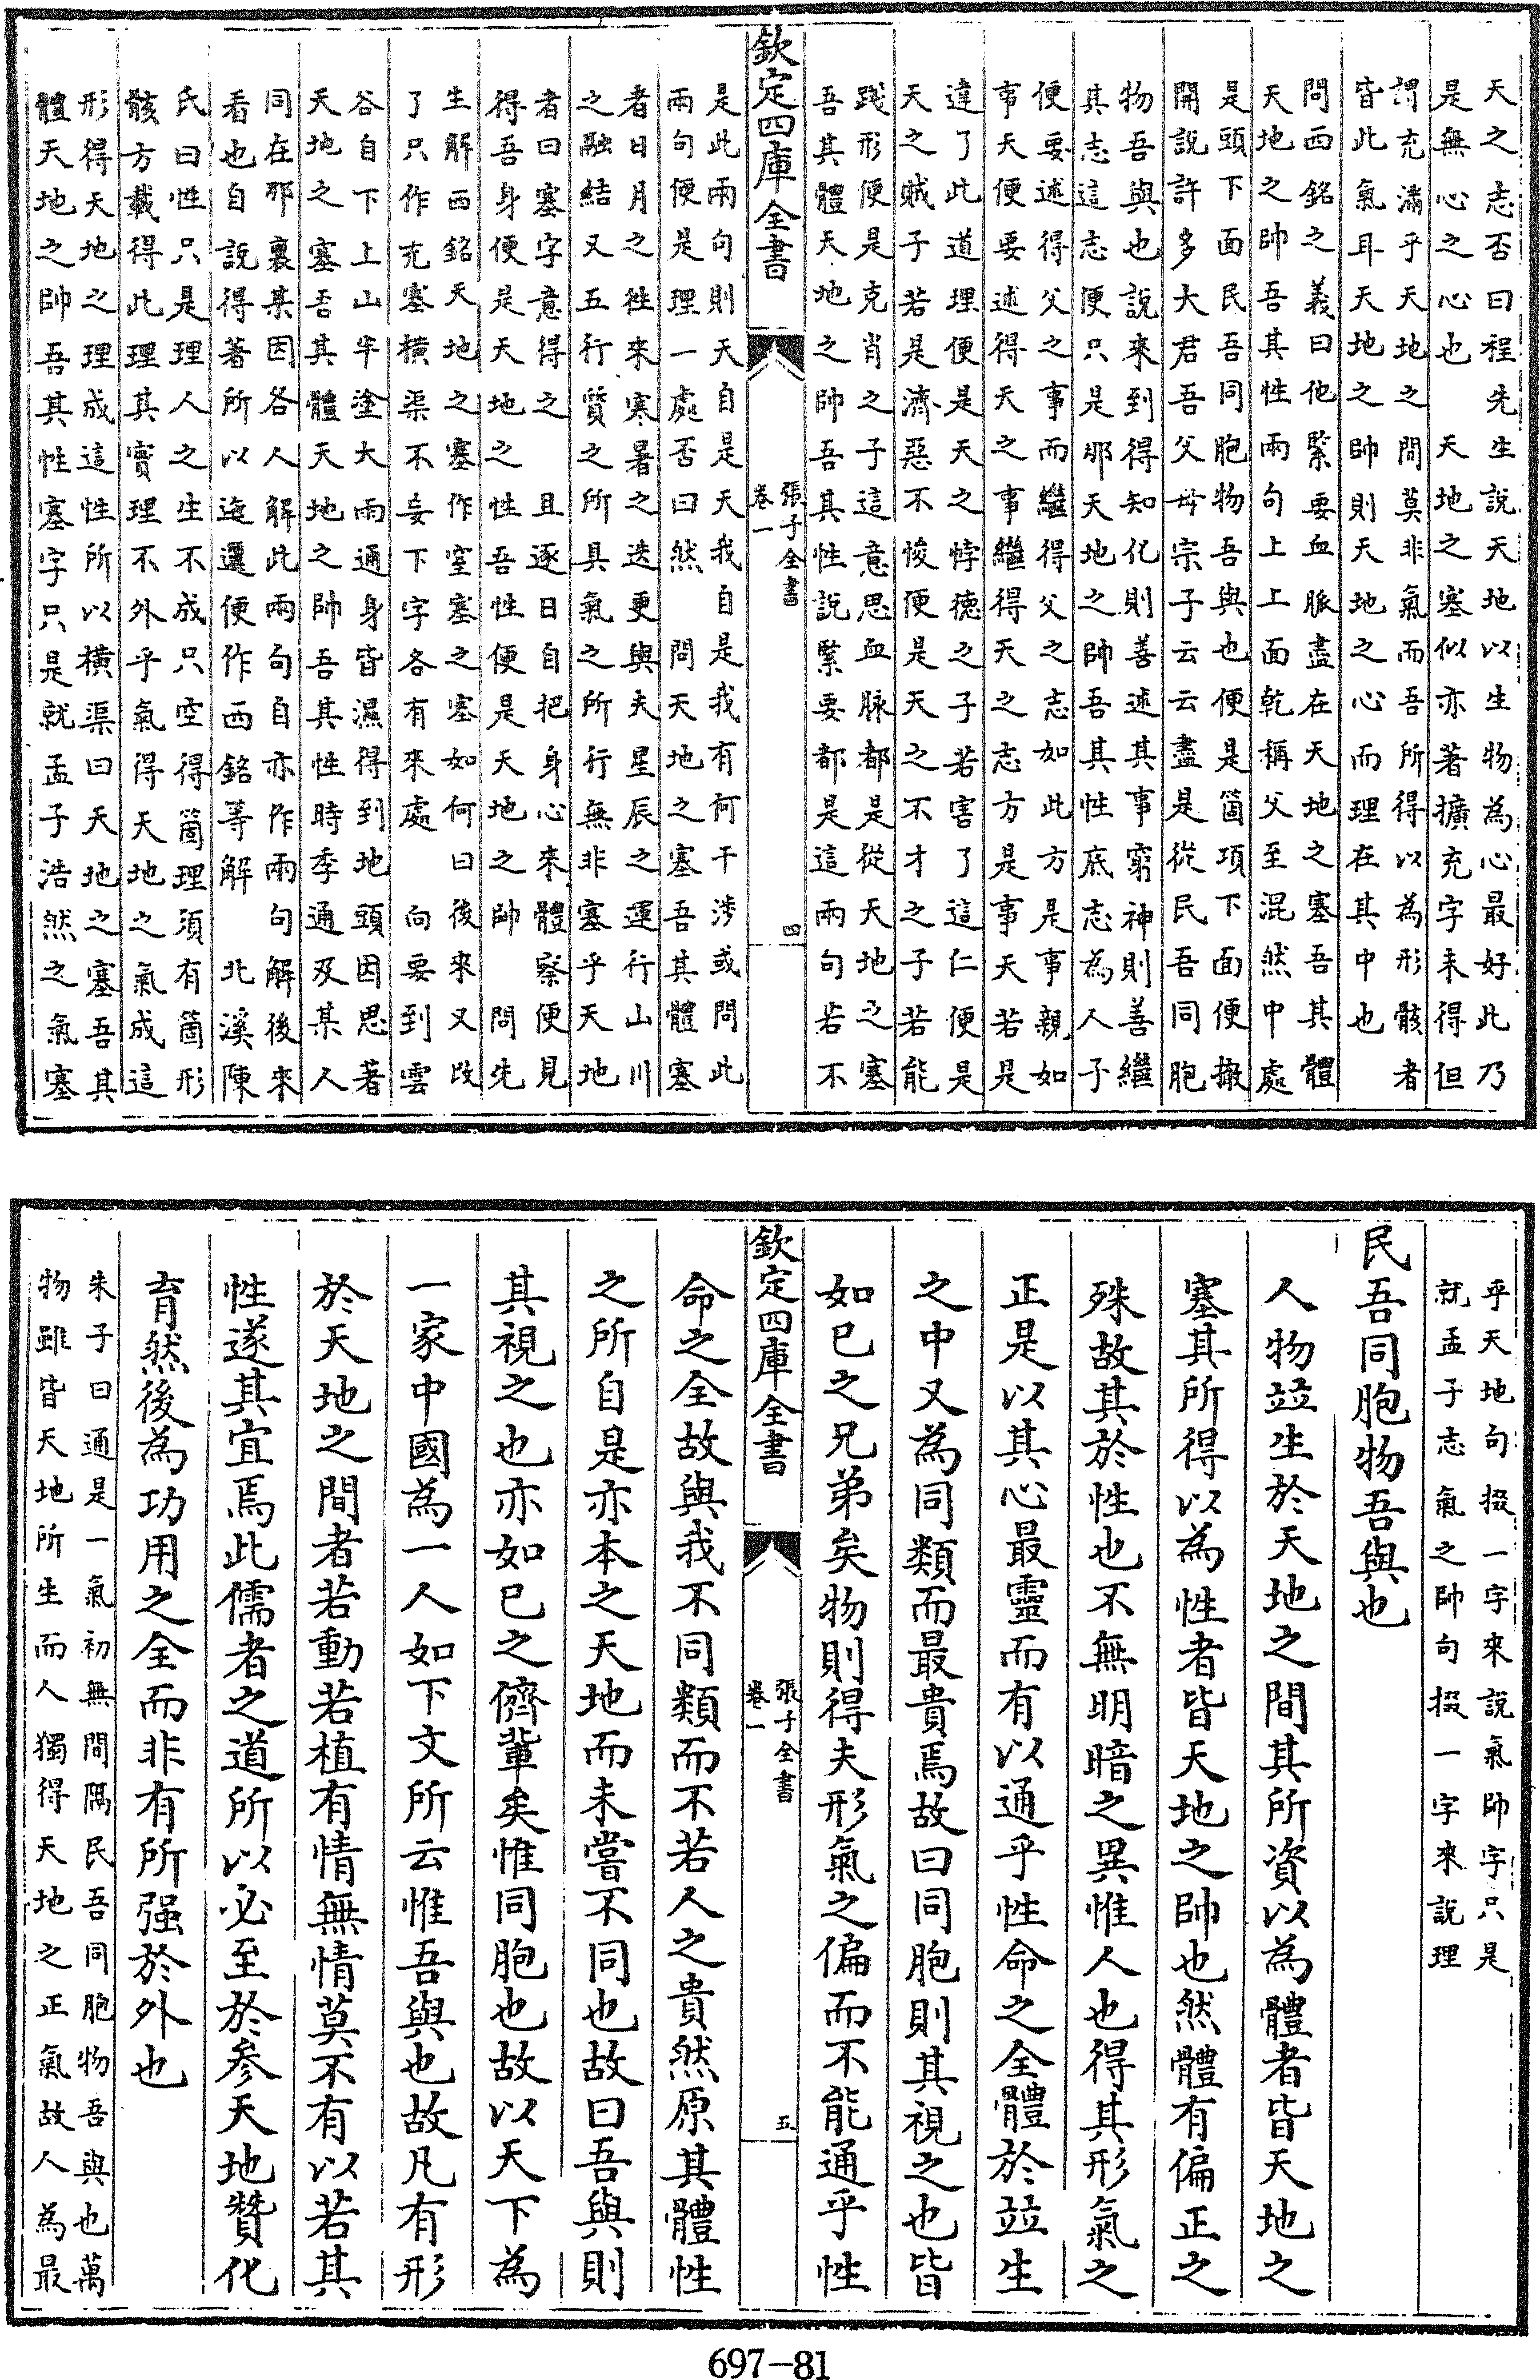 天之志否曰程先生說天地以生物為心最好此乃
是無心之心也　天地之塞似亦著擴充字未得但
謂充滿乎天地之間莫非氣而吾所得以為形骸者
皆此氣耳天地之帥則天地之心而理在其中也
問西銘之義曰他緊要血脈盡在天地之塞吾其體
天地之帥吾其性兩句上上面乾稱父至混然中處
是頭下面民吾同胞物吾與也便是箇項下面便撒
開說許多大君吾父母宗子云云盡是從民吾同胞
物吾與也說來到得知化則善述其事窮神則善繼
其志這志便只是那天地之帥吾其性底志為人子
便要述得父之事而繼得父之志如此方是事親如
事天便要述得天之事繼得天之志方是事天若是
違了此道理便是天之悖德之子若害了這仁便是
天之賊子若是濟惡不悛便是天之不才之子若能
踐形便是克肖之子這意思血脉都是從天地之塞
吾其體天地之帥吾其性說緊要都是這兩句若不
欽定四庫全書
張子全書
卷一
四
是此兩句則天自是天我自是我有何干涉或問此
兩句便是理一處否曰然　問天地之塞吾其體塞
者日月之徃來寒暑之迭更與夫星辰之運行山川
之融結又五行質之所具氣之所行無非塞乎天地
者曰塞字意得之　且逐日自把身心來體察便見
得吾身便是天地之性吾性便是天地之帥　問先
生解西銘天地之塞作窒塞之塞如何曰後來又改
了只作充塞橫渠不妄下字各有來處　向要到雲
谷自下上山半塗大雨通身皆濕得到地頭因思著
天地之塞吾其體天地之帥吾其性時季通及某人
同在那裏某因各人解此兩句自亦作兩句解後來
看也自說得著所以迤邐便作西銘等解　北溪陳
氏曰性只是理人之生不成只空得箇理須有箇形
骸方載得此理其實理不外乎氣得天地之氣成這
形得天地之理成這性所以橫渠曰天地之塞吾其
體天地之帥吾其性塞字只是就孟子浩然之氣塞
乎天地句掇一字來說氣帥字只是
就孟子志氣之帥句掇一字來說理
民吾同胞物吾與也
人物竝生於天地之間其所資以為體者皆天地之
塞其所得以為性者皆天地之帥也然體有偏正之
殊故其於性也不無明暗之異惟人也得其形氣之
正是以其心最靈而有以通乎性命之全體於竝生
之中又為同類而最貴焉故曰同胞則其視之也皆
如已之兄弟矣物則得夫形氣之偏而不能通乎性
欽定四庫全書
張子全書
卷一
五
命之全故與我不同類而不若人之貴然原其體性
之所自是亦本之天地而未嘗不同也故曰吾與則
其視之也亦如已之儕輩矣惟同胞也故以天下為
一家中國為一人如下文所云惟吾與也故凡有形
於天地之間者若動若植有情無情莫不有以若其
性遂其宜焉此儒者之道所以必至於參天地贊化
育然後為功用之全而非有所强於外也
朱子曰通是一氣初無間隔民吾同胞物吾與也萬
物雖皆天地所生而人獨得天地之正氣故人為最
697-81